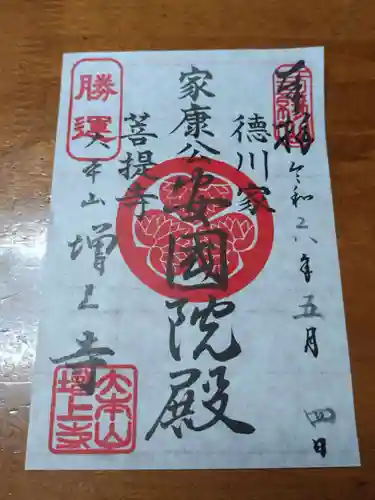 奉拝
令和六年五月四日
徳川家
菩提寺
家康公
安國院殿
勝運
大本山
増上寺
大本山
増上寺